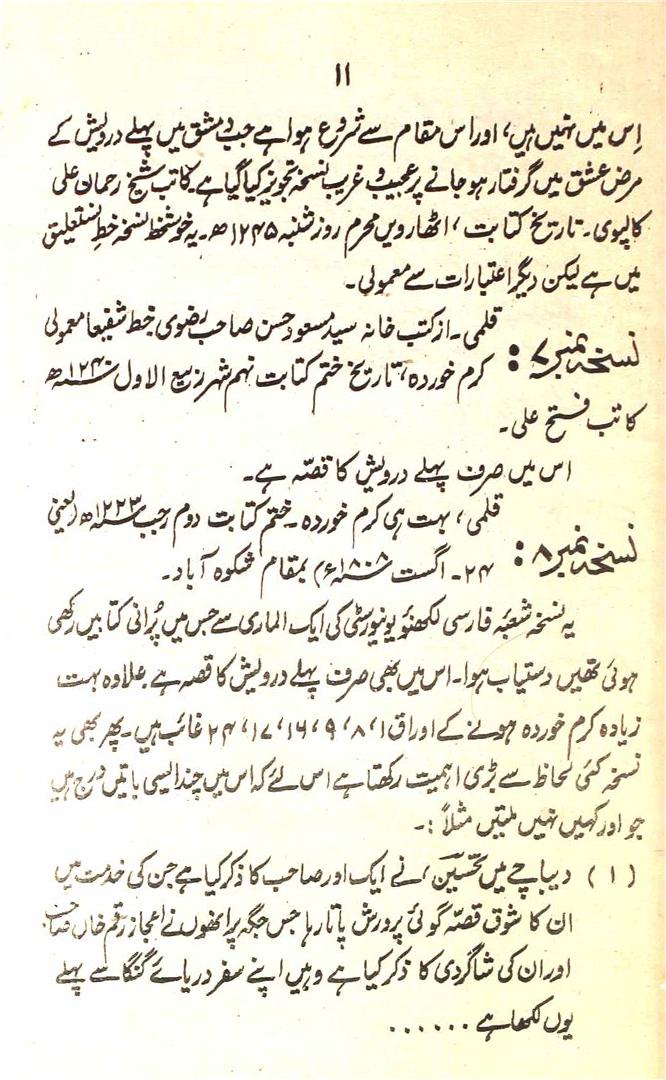 ۱۱
اِس میں نہیں ہیں، اور اس مقام سے شروع ہوا ہے جب دمشق میں پہلے درویش کے
مرض عشق میں گرفتار ہو جانے پر عجیب و غریب نسخہ تجویز کیا گیا ہے۔ کاتب شیخ رحمان علی
کالپوی۔ تاریخ کتابت، اٹھارویں محرم روز شنبہ ۱۲۴۵ھ۔ یہ خوشخط نسخہ خطِ نستعلیق
میں ہے لیکن دیگر اعتبارات سے معمولی۔
نسخہ نمبر ۷: قلمی۔ از کتب خانہ سید مسعود حسن صاحب رضوی بخط شفیعا معمولی
کرم خوردہ، تاریخ ختم کتابت نہم شہر ربیع الاول ۱۲۴۰ھ
کاتب فتح علی۔
اس میں صرف پہلے درویش کا قصّہ ہے۔
نسخہ نمبر ۸: قلمی، بہت ہی کرم خوردہ۔ ختم کتابت دوم رجب ۱۲۲۳ھ (یعنی
۲۴۔ اگست ۱۸۰۸ء) بمقام شکوہ آباد۔
یہ نسخہ شعبۂ فارسی لکھنؤ یونیورسٹی کی ایک الماری سے جس میں پُرانی کتابیں رکھی
ہوئی تھیں دستیاب ہوا۔ اس میں بھی صرف پہلے درویش کا قصہ ہے۔ علاوہ بہت
زیادہ کرم خوردہ ہونے کے اوراق ۱، ۸، ۹، ۱۶، ۱۷، ۲۴ غائب ہیں۔ پھر بھی یہ
نسخہ کئی لحاظ سے بڑی اہمیت رکھتا ہے اس لئے کہ اس میں چند ایسی باتیں درج ہیں
جو اور کہیں نہیں ملتیں مثلاً :۔
(۱) دیباچے میں تحسینؔ نے ایک اور صاحب کا ذکر کیا ہے جن کی خدمت میں
ان کا شوق قصّہ گوئی پرورش پاتا رہا جس جگہ پر انھوں نے اعجاز رقم خاں صاحب
اور ان کی شاگردی کا ذکر کیا ہے وہیں اپنے سفر دریائے گنگا سے پہلے
یوں لکھا ہے ......